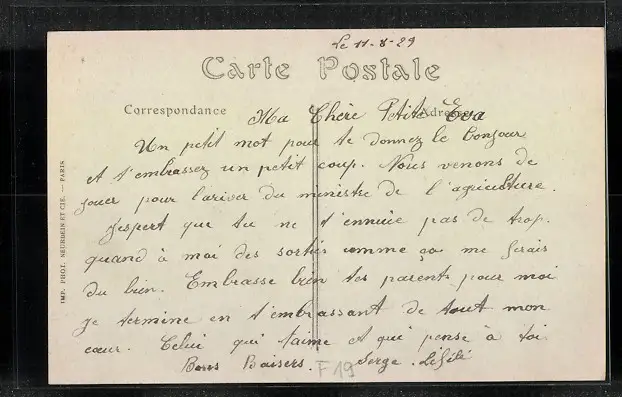 Le 11-8-29
Carte Postale
Correspondance
Adresse
Ma Chère Petite Eva
Un petit mot pour te donnez le bonjour
et t'embrassez un petit coup. Nous venons de
jouer pour l'ariver du ministre de l'agriculture.
J'espert que tu ne t'ennuie pas de trop.
quand à moi des sorties comme ça me ferais
du bien. Embrasse bien tes parents pour moi
je termine en t'embrassant de tout mon
cœur. Celui qui t'aime et qui pense à toi
Bons Baisers. Serge.
F 19
IMP. PHOT. NEURDEIN ET CIE. — PARIS